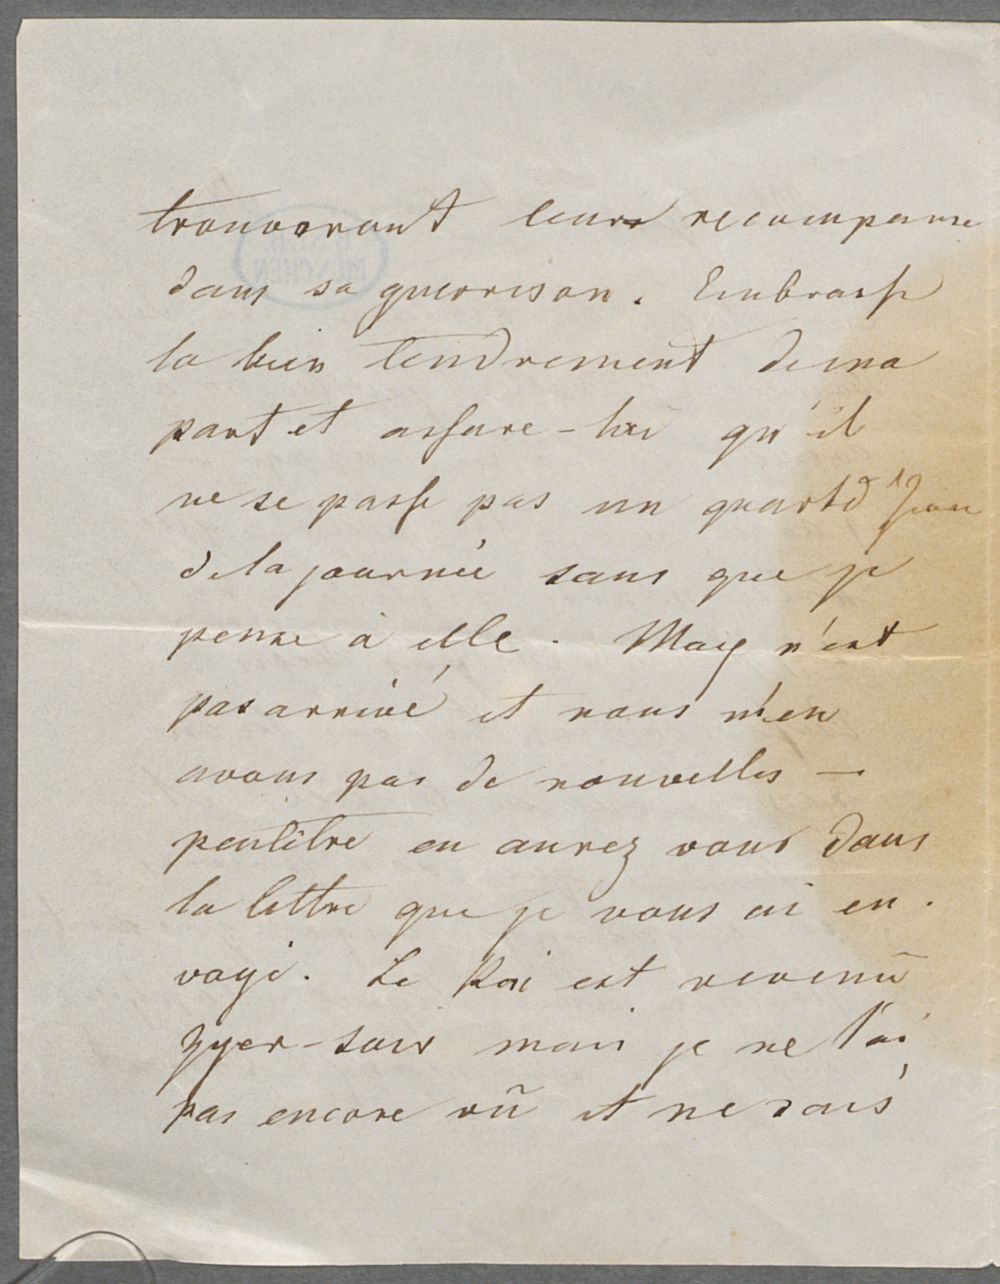 trouveront leurs recompense
dans sa guerison. Embrasse
la bien tendrement de ma
part et assure-lui qu'il
ne se passe pas un quart d'heure
de la journée sans que je
pense à elle. Max n'est
pas arrivé et nous n'en
avons pas de nouvelles —
peutêtre en aurez vous dans
la lettre que je vous ai en.
voyé. Le Roi est revenû
hyer-soir mais je ne l'ai
pas encore vû et ne sais